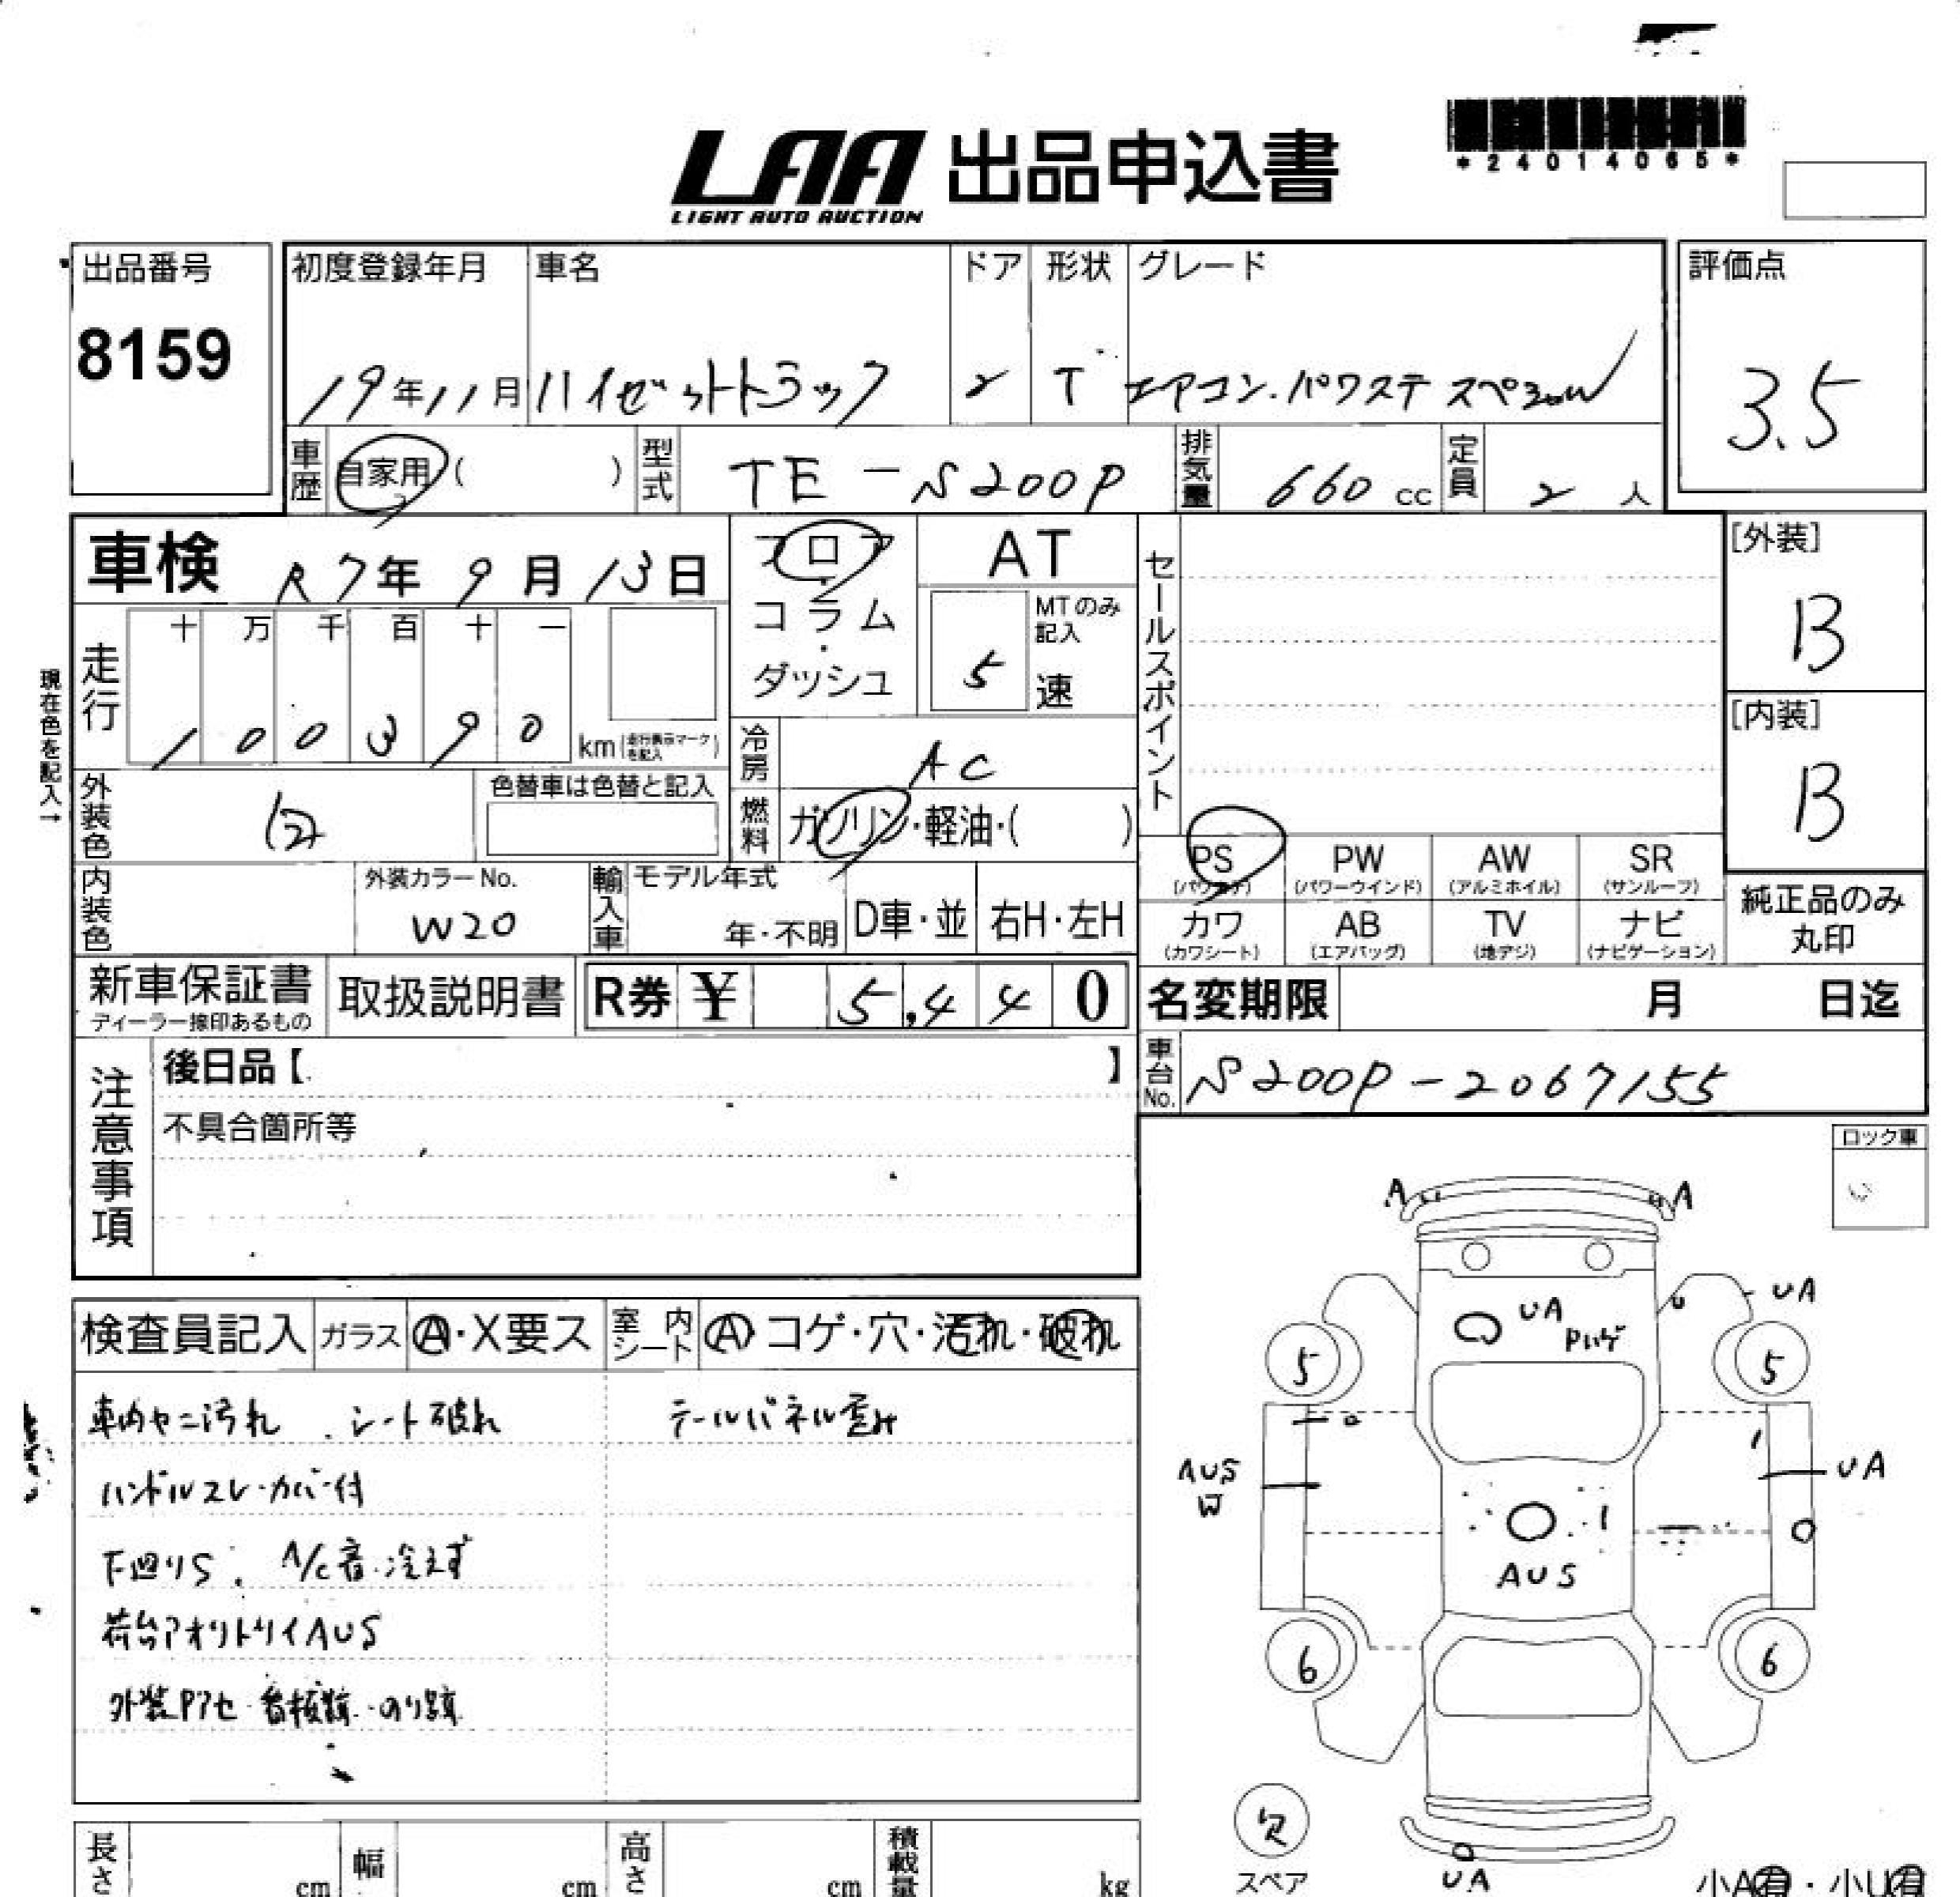 LAA 出品申込書
LIGHT AUTO AUCTION
*24014065*
出品番号 8159
初度登録年月 19年11月
車名 ハイゼットトラック
ドア 2
形状 T
グレード エアコン.パワステ スペシャル
評価点 3.5
車歴 自家用 ( )
型式 TE-S200P
排気量 660 cc
定員 2 人
車検 R7年 9月 13日
フロア・コラム・ダッシュ
AT
MTのみ記入 5 速
走行 十 万 千 百 十 一
1 0 0 3 9 0 km (走行表示マークを記入)
現在色を記入→
外装色 白
色替車は色替と記入
冷房 AC
燃料 ガソリン・軽油・( )
内装色
外装カラーNo. W20
輸入車 モデル年式 年・不明 D車・並 右H・左H
新車保証書 ディーラー捺印あるもの
取扱説明書
R券 ¥ 5,440
セールスポイント
PS (パワステ) PW (パワーウインド) AW (アルミホイル) SR (サンルーフ)
カワ (カワシート) AB (エアバッグ) TV (地デジ) ナビ (ナビゲーション)
純正品のみ丸印
[外装] B
[内装] B
名変期限 月 日迄
車台No. S200P-2067155
注意事項
後日品【 】
不具合箇所等
検査員記入 ガラス A・X要ス 室内シート A コゲ・穴・汚れ・破れ
車内ヤニ汚れ . シート破れ テールパネル歪み
ハンドルスレ・カバー付
下回りS. A/C音.冷えず
荷台アオリトリイAUS
外装Pアセ・看板跡・のり跡
ロック車
A A
UA
UA Pハゲ
5 5
AUS W
UA
AUS
6 6
欠
スペア
UA
小A有・小U有
長さ cm 幅 cm 高さ cm 積載量 kg